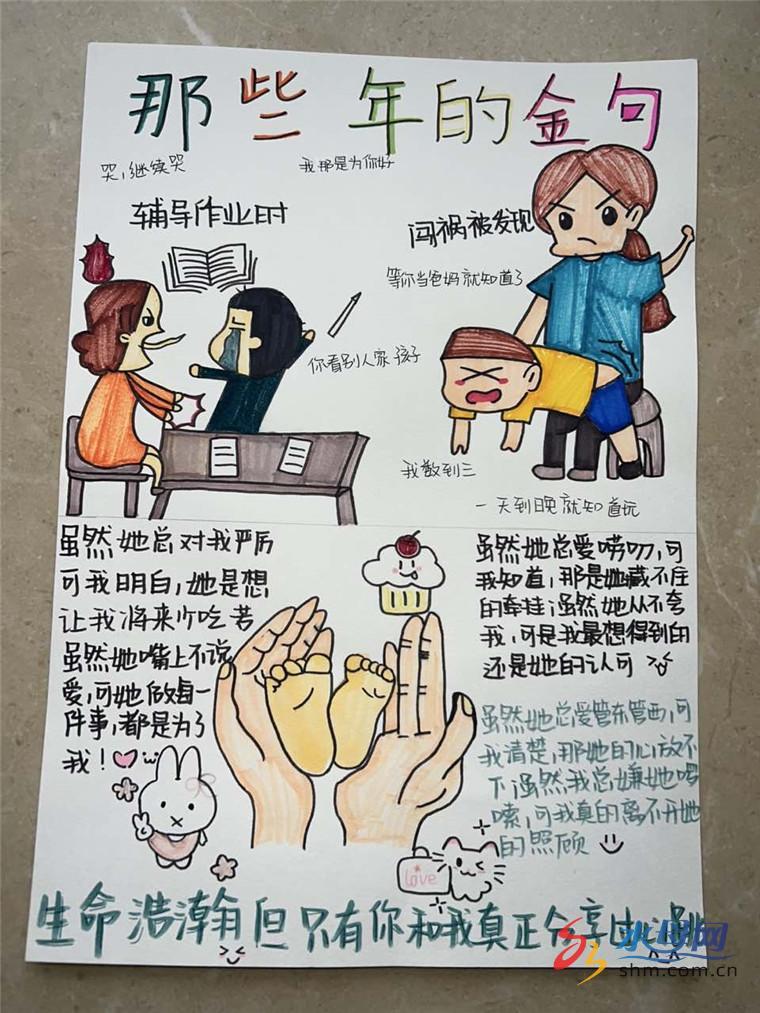 那些年的金句
哭,继续哭
我都是为你好
辅导作业时
闯祸被发现
等你当爸妈就知道了
你看别人家孩子
我数到三
一天到晚就知道玩
虽然她总对我严厉
可我明白,她是想
让我将来少吃苦
虽然她嘴上不说
爱,可她做每一
件事,都是为了
我!
虽然她总爱唠叨,可
我知道,那是她藏不住
的牵挂;虽然她从不夸
我,可是我最想得到的
还是她的认可
虽然她总爱管东管西,可
我清楚,那她的心放不
下;虽然我总嫌她啰
嗦,可我真的离不开她
的照顾
love
生命浩瀚但只有你和我真正分享过心跳
水母网
shm.com.cn